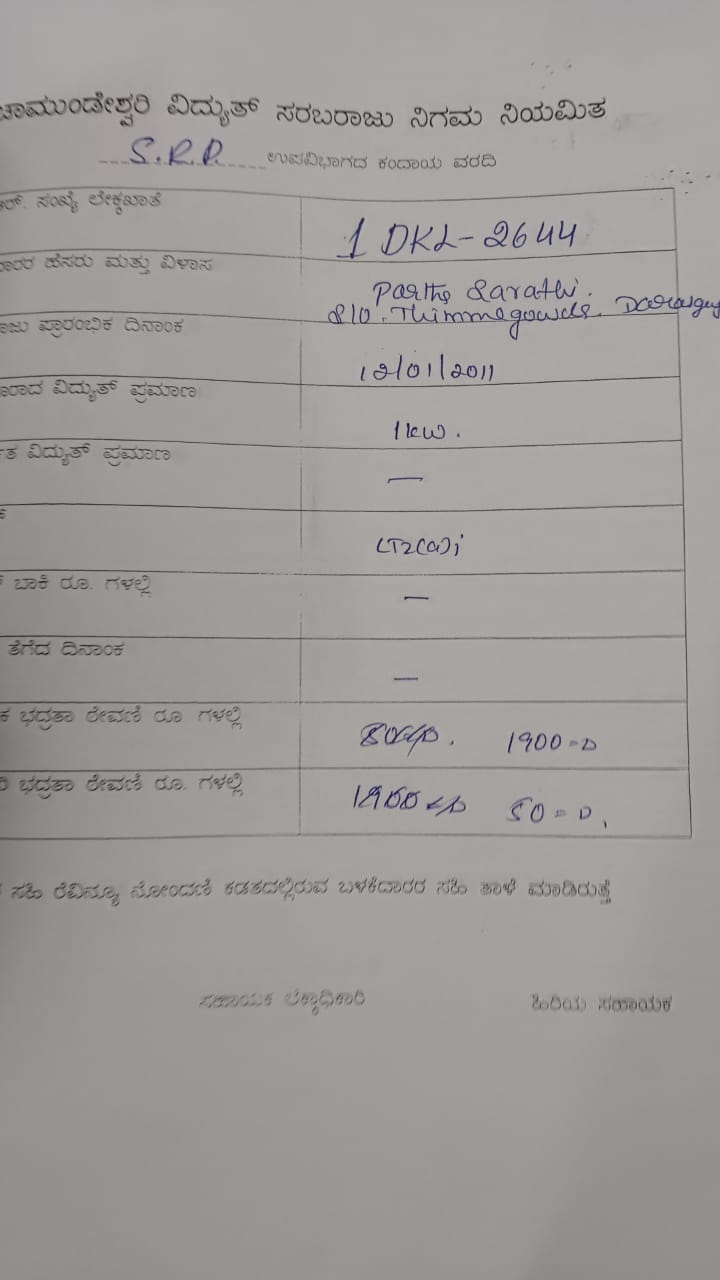 ಚಾಮುಂಡೇಶ್ವರಿ ವಿದ್ಯುತ್ ಸರಬರಾಜು ನಿಗಮ ನಿಯಮಿತ
S.R.P. ಉಪವಿಭಾಗದ ಕಂದಾಯ ವರದಿ
ಆರ್. ಸಂಖ್ಯೆ ಲೇಕ್ಕಖಾತೆ 1 DKL-2644
ದಾರರ ಹೆಸರು ಮತ್ತು ವಿಳಾಸ Partha Sarathi.
S/O. Thimmegowda.
ರಾಜು ಪ್ರಾರಂಭಿಕ ದಿನಾಂಕ 12/01/2011
ವಿದ್ಯುತ್ ಪ್ರಮಾಣ 1kw.
ವಿದ್ಯುತ್ ಪ್ರಮಾಣ —
LT2(a)i
ಬಾಕಿ ರೂ. ಗಳಲ್ಲಿ —
ತೆಗೆದ ದಿನಾಂಕ —
ಕ ಭದ್ರತಾ ಠೇವಣಿ ರೂ ಗಳಲ್ಲಿ 1900=0
ಭದ್ರತಾ ಠೇವಣಿ ರೂ. ಗಳಲ್ಲಿ 50=0
ಸಹಿ ರೆವಿನ್ಯೂ ನೋಂದಣಿ ಕಡತದಲ್ಲಿರುವ ಬಳಕೆದಾರರ ಸಹಿ ತಾಳೆ ಮಾಡಿರುತ್ತೆ
ಸಹಾಯಕ ಲೆಕ್ಕಾಧಿಕಾರಿ ಹಿರಿಯ ಸಹಾಯಕ